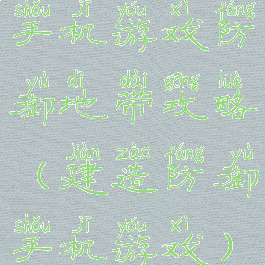 shǒu jī yóu xì fáng
手机游戏防
yù dì dài gōng lüè
御地带攻略
jiàn zào fáng yù
（建造防御
shǒu jī yóu xì
手机游戏）